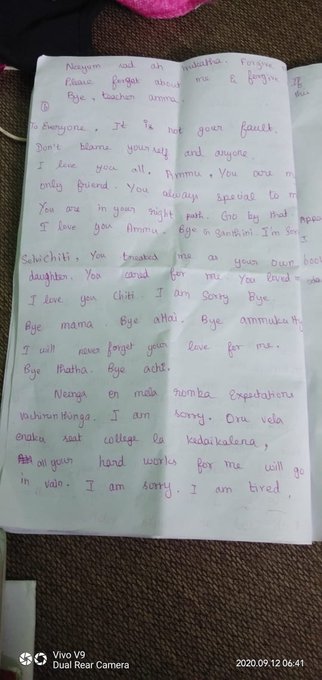 Neeyum sad ah irukatha. Forgive
Please forget about me & forgive
Bye, teacher amma.
To Everyone, It is not your fault.
Don't blame yourself and anyone
I love you all. Ammu, You are m
only friend. You always special to m
You are in your right path. Go by that
I love you Ammu. Bye Santhini. I'm Sorr
Selvichiti, You treated me as your own
daughter. You cared for me. You loved
I love you Chiti. I am Sorry Bye.
Bye mama. Bye attai. Bye ammukutty
I will never forget your love for me.
Bye thatha. Bye achi.
Neenga en mela romba Expectations
vachirunthunga. I am sorry. Oru vela
enaku seat college la kedaikalena,
all your hard works for me will go
in vain. I am sorry. I am tired,
Vivo V9
Dual Rear Camera
2020.09.12 06:41